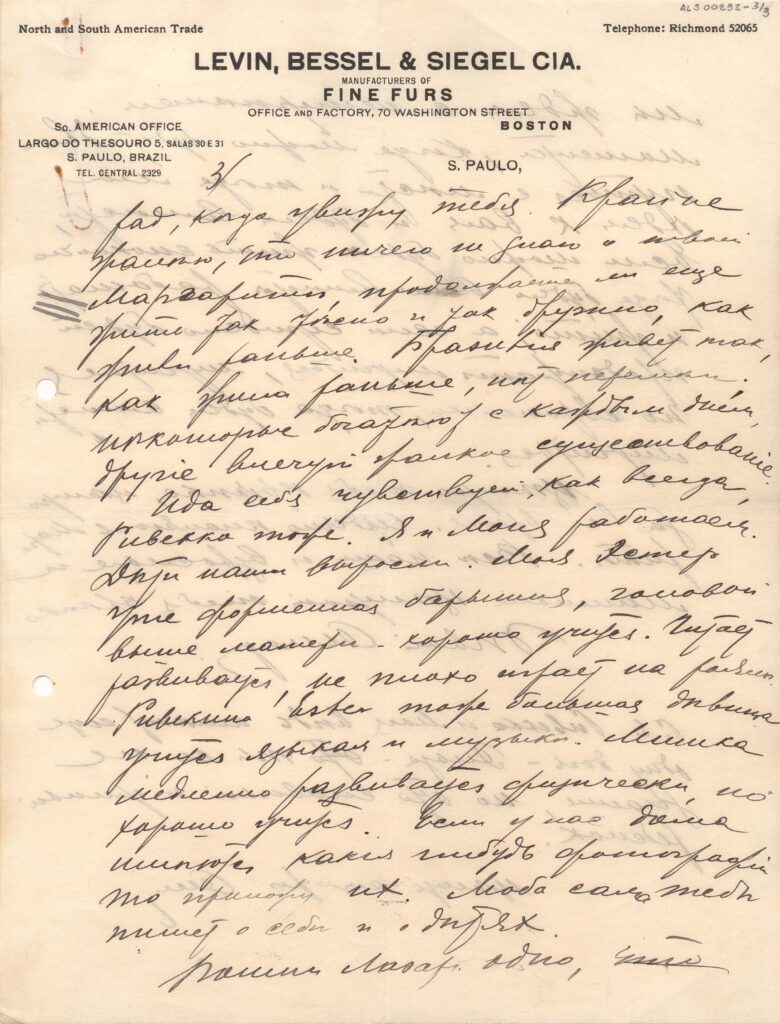 ALS 00232-3/3
North and South American Trade
Telephone: Richmond 52065
LEVIN, BESSEL & SIEGEL CIA.
MANUFACTURERS OF
FINE FURS
OFFICE AND FACTORY, 70 WASHINGTON STREET
BOSTON
So. AMERICAN OFFICE
LARGO DO THESOURO 5, SALAS 30 E 31
S. PAULO, BRAZIL
TEL. CENTRAL 2329
S. PAULO,
3/
рад, когда увижу тебя. Крайне
жалею, что ничего не знаю о твоей
Маргарите, продолжаете ли еще
жить так тесно и так дружно, как
жили раньше. Бразилия живет так,
как жила раньше, нет перемен.
некоторые богатеют с каждым днем,
другие влачут жалкое существование.
Ида себя чувствует, как всегда,
Ривекка тоже. Я и Моня работаем.
Дѣти наши выросли. Моя Эстер
уже форменная барышня, головой
выше матери - хорошо учится. Читает
развивается, не плохо играет на роялѣ.
Ривекина Ester тоже большая дѣвица
учится языкам и музыки. Мишка
медленно развивается физически, но
хорошо учится. Если у нас дома
имѣются какия нибудь фотографіи
то приложу их. Моба сама тебѣ
пишет о себѣ и о дѣтях.
Лазар. одно, что